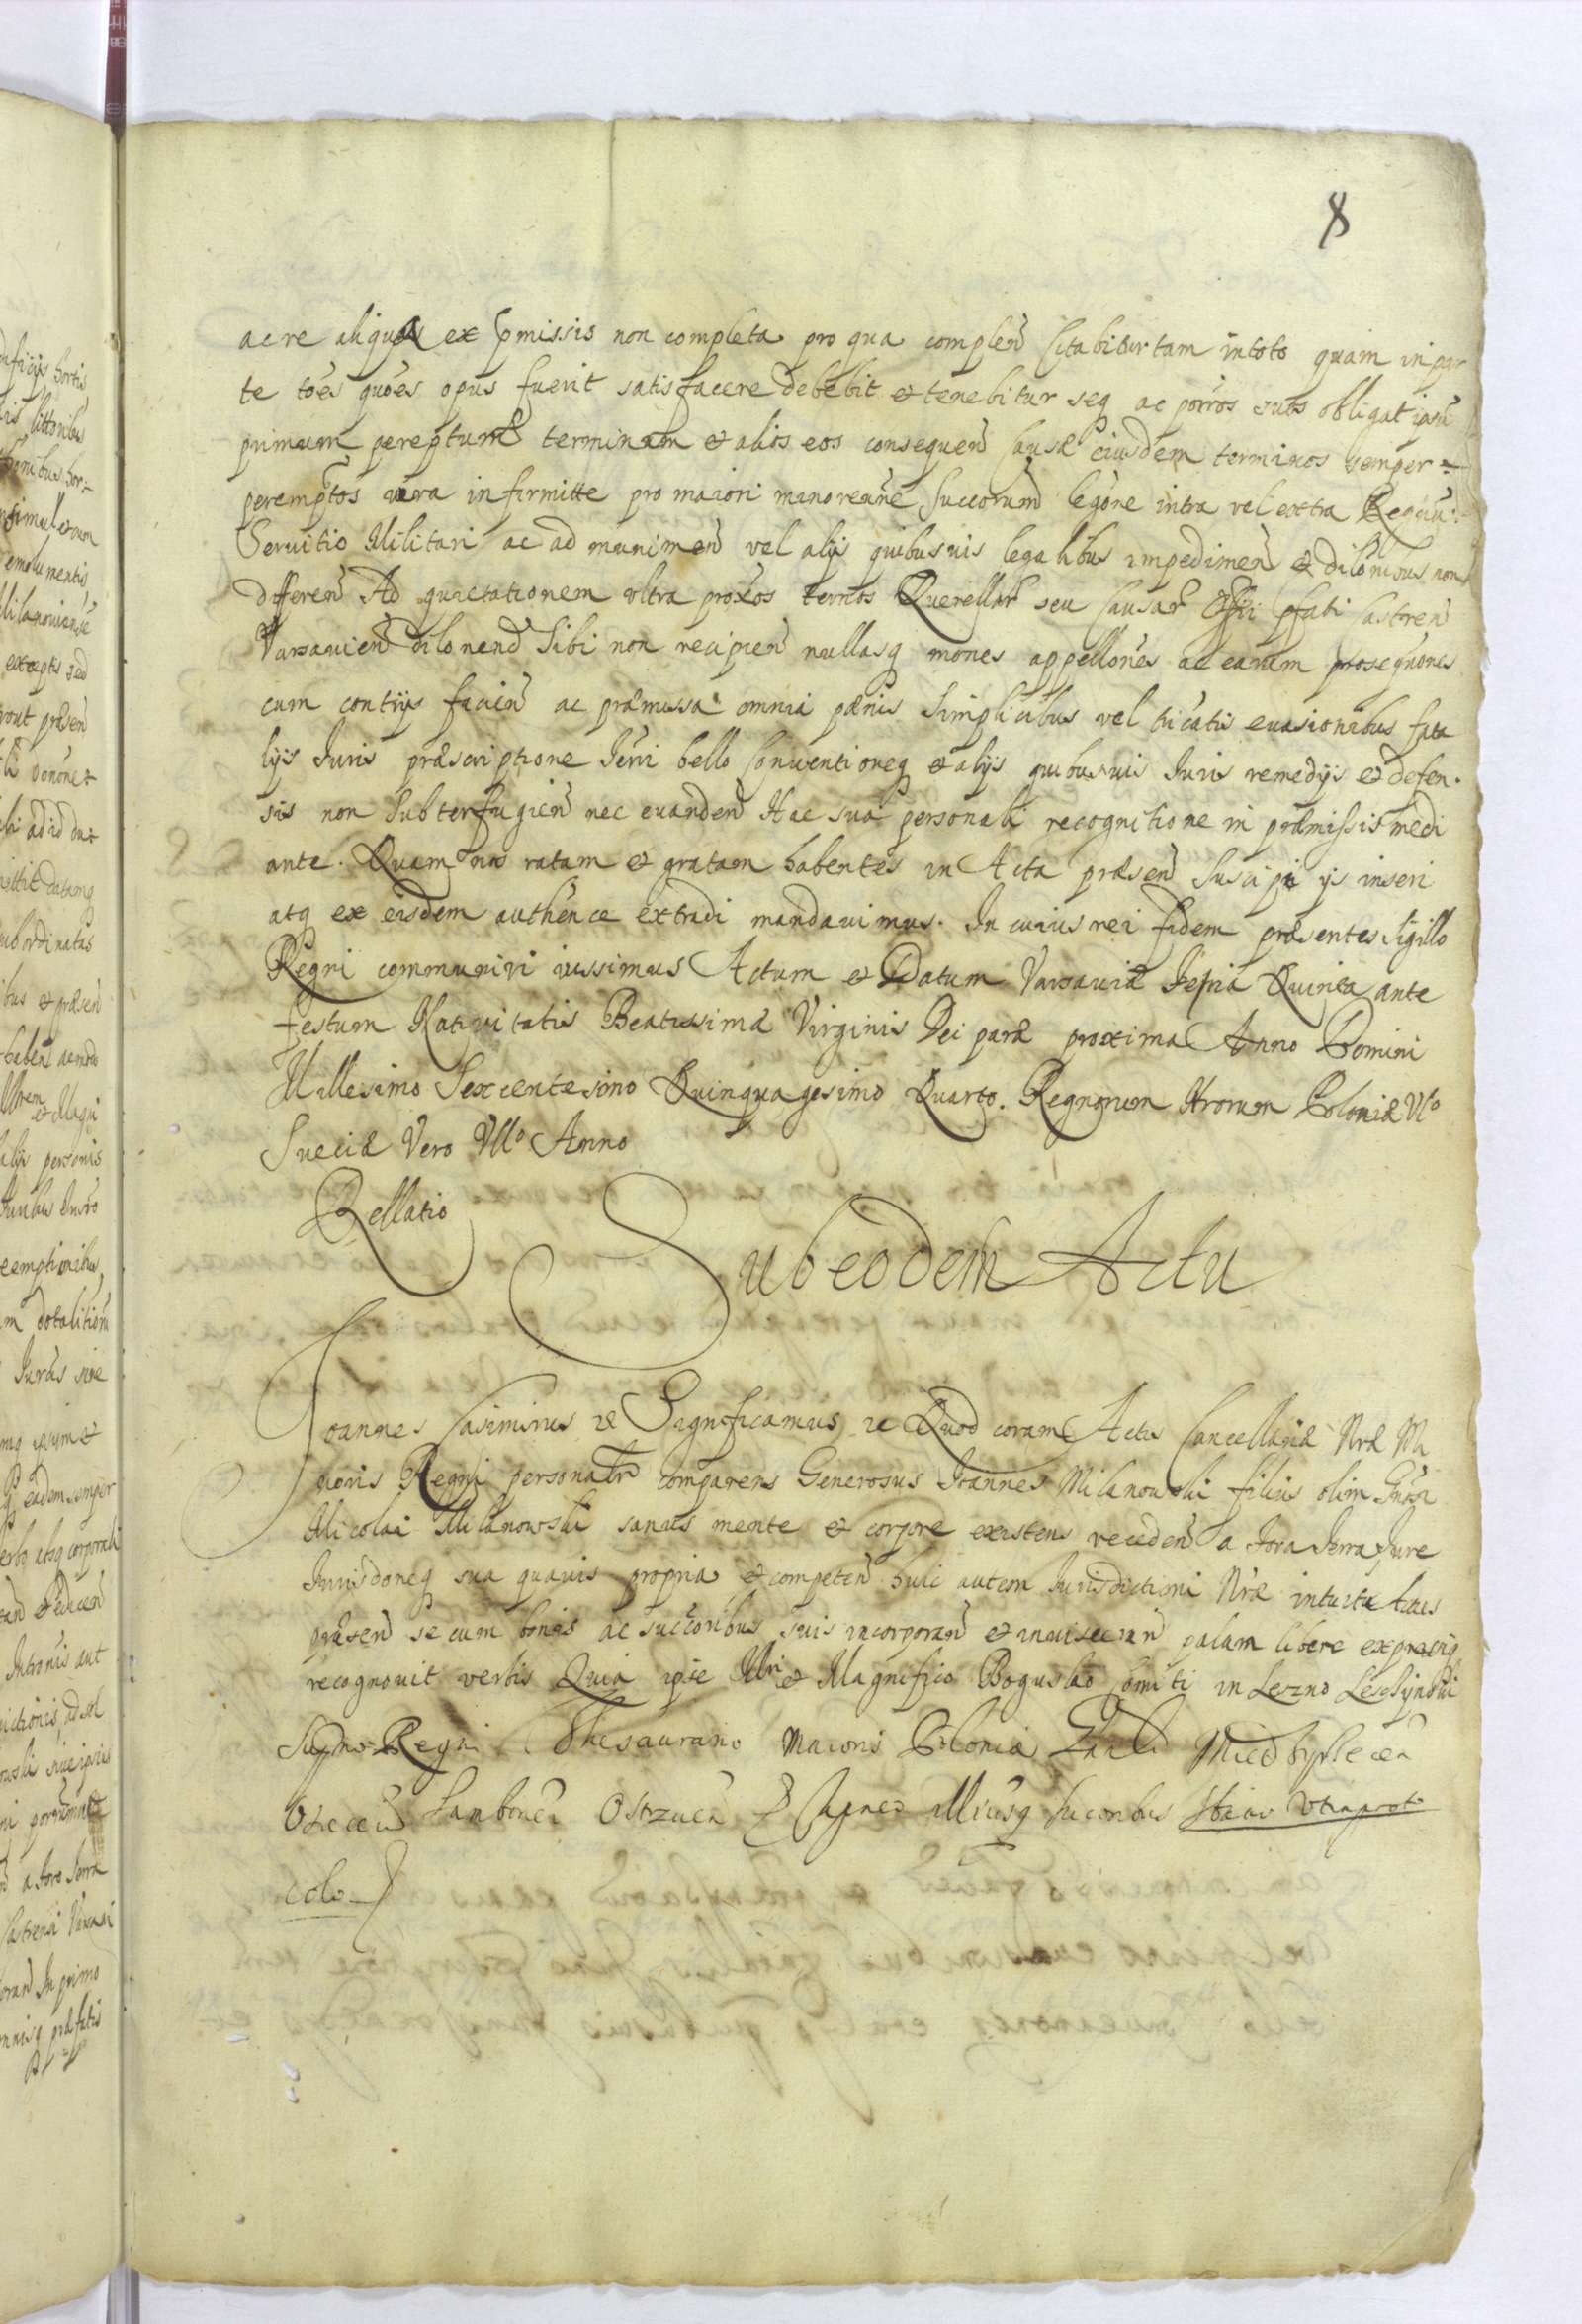 8
ac re aliqua ex pmissis non completa pro qua complen̄ Citabitur tam in toto quam in par
te tões quões opus fuerit satisfacere debebit et tenebitur seq ac porros suos obligat
primum pereptum terminum et alios eos consequen̄ Causæ eiusdem terminos semper
peremptos vera infirmitte pro maiori minoreune Succorum legõne intra vel extra Regnu
Seruitio Militari ac ad munimen̄ vel alijs quibusuis legalibus impedimen̄ et dilõnibus non
differen̄ Ad quietationem vltra proxõs ternos Querellar seu Causar Offi pfati Castren̄
Varsauien̄ dilonend Sibi non recipien̄ nullasq mones appellões ac earum prosequões
cum contrijs facien̄ ac præmissa omnia pænis Simplicibus vel tricatis euasionibus fata
lijs Juris præscriptione Terri bello Conuentioneq et alijs quibusuis Juris remedijs et defen.
sis non Subterfugien̄ nec euanden̄ Hac sua personali recognitione in præmissis medi
ante. Quam nos ratam et gratam habentes in Acta præsen̄ Suscipi ijs inseri
atq ex eisdem authence extradi mandauimus. In cuius rei fidem præsentes Sigillo
Regni communiri iussimus Actum et Datum Varsauiæ Feria Quinta ante
festum Natiuitatis Beatissimæ Virginis Dei paræ proxima Anno Domini
Millesimo Sexcentesimo Quinquagesimo Quarto. Regnorum Nrorum Poloniæ VIº
Sueciæ Vero VIIº Anno
Rellatio
Sub eodem Actu
Joannes Casimirus &c Significamus &c Quod coram Actis Cancellariæ Nræ Mi
noris Regni personalr comparens Generosus Joannes Milanowski filius olim Gnsi
Nicolai Milanowski sanus mente et corpore existens receden̄ a foro Terra Jure
Jurisdoneq sua quauis propria et competen̄ huic autem Jurisdictioni Nræ intuitu Actus
præsen̄ se cum bonis ac succoribus suis incorporan̄ et inuisceran̄ palam libere expressisq
recognouit verbis Quia ipse Illri et Magnifico Boguslao Comiti in Leszno Lesczynski
Supmo Regni Thesaurario Maioris Poloniæ Gnali Miedzyrzecen
Osiecen̄ Ostrzuen Capneo Illiusq Succoribus vtin proto
colo